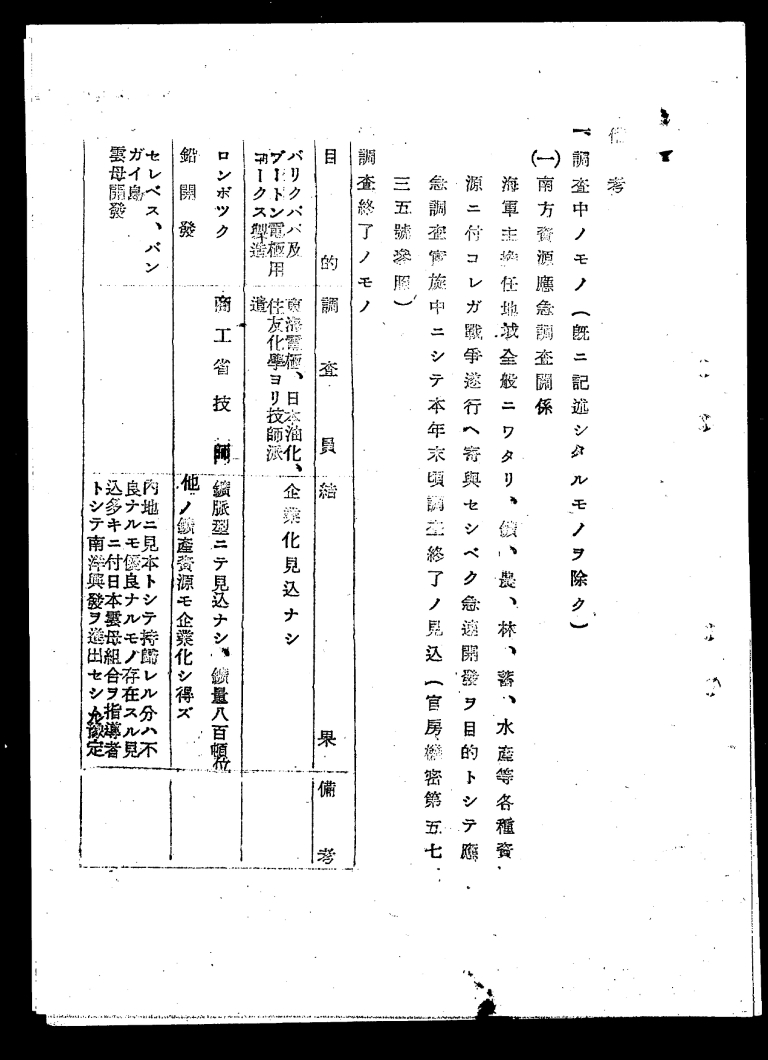 備考
一、調査中ノモノ(既ニ記述シタルモノヲ除ク)
(一)南方資源應急調査關係
海軍主擔任地域全般ニワタリ、鑛、農、林、蓄、水產等各種資
源ニ付コレガ戰爭遂行ヘ寄與セシベク急速開發ヲ目的トシテ應
急調査實施中ニシテ本年末頃調査終了ノ見込(官房機密第五七
三五號參照)
調査終了ノモノ
目的 調査員 結果 備考
バリクパパ及
ブートン電極用
コークス製造
東海電極、日本油化、
住友化學ヨリ技師派
遣
企業化見込ナシ
ロンボツク
鉛開發
商工省技師
鑛脈型ニテ見込ナシ、鑛量八百頓位
他ノ鑛產資源モ企業化シ得ズ
セレベス、バン
ガイ島
雲母開發
內地ニ見本トシテ持歸レル分ハ不
良ナルモ優良ナルモノ存在スル見
込多キニ付日本雲母組合ヲ指導者
トシテ南洋興發ヲ進出セシム豫定